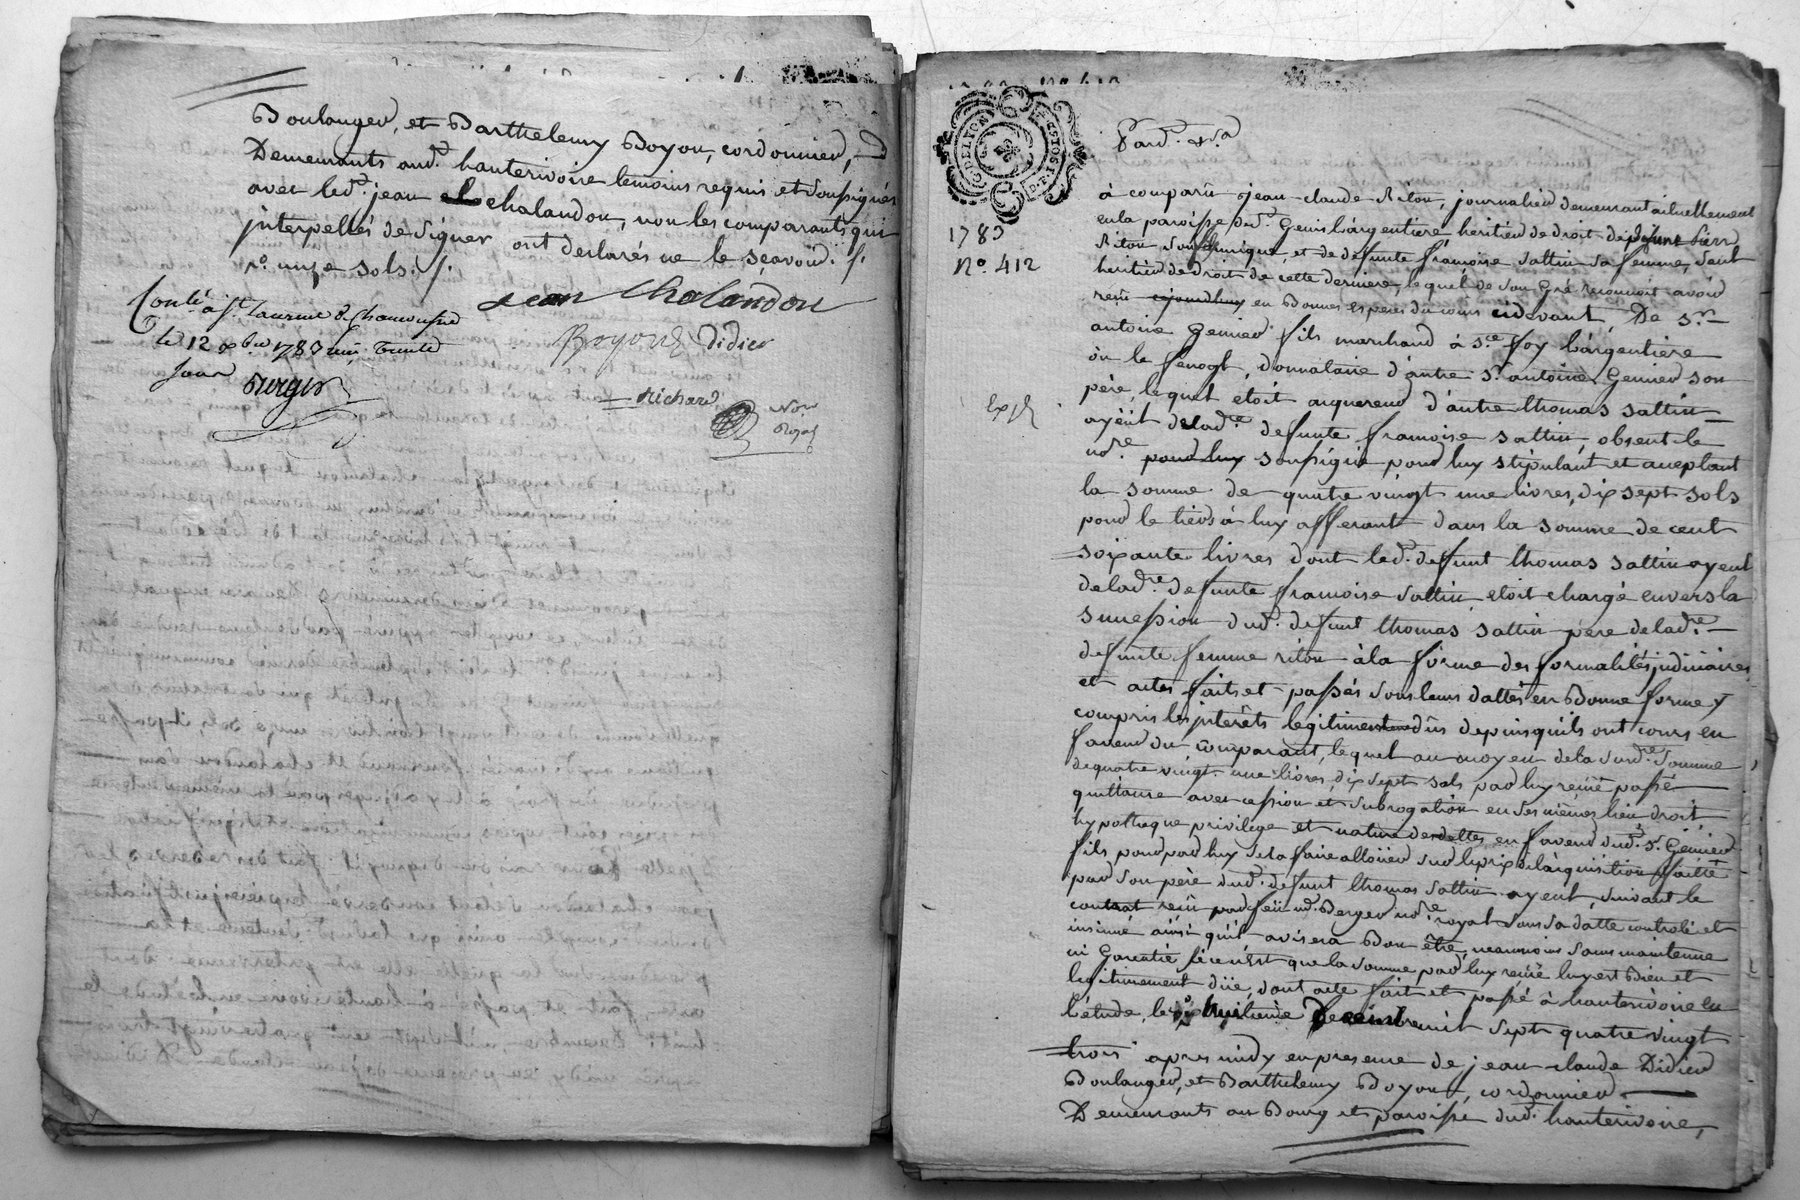 Boulanger, et Barthelemy Boyon, cordonnier,
Demeurants aud. hauterivoire temoins requis et soussignés
avec led. jean chalandon, non les comparants qui
jnterpellés de signer ont declarés ne le sçavoir. /.
r.º onze sols. /.
jean chalandon
Conlé à st. Laurent de Chamousset
Boyon Didier
le 12 xbre 1783 reçu trente
sous
Berger
Richard
Nore
Royal
G. DE LYON
D. P. 1 SOL
Pard. 
1783
Nº 412
à comparû jean-claude Riton, journalier demeurant actuellement
en la paroisse de st. Genis l'argentière heritier de droit de defunt Pierre
Riton son unique, et de defunte françoise Sattin sa femme, seul
heritier de droit de cette derniere, lequel de son gré reconnoit avoir
reçu en Bonnes especes du cours cidevant, De sr.
antoine Grenier fils marchand à ste foy l'argentière
où le fenoyl, donnataire d'autre sr. antoine Grenier son
père, lequel etoit acquereur d'autre thomas sattin
ayeul de lad.re defunte françoise sattin, absent le
nd.re soussigné pour luy stipulant et acceptant
la somme de quatre vingt une livres, dix sept sols
pour le tiers à luy afferant dans la somme de cent
soixante livres dont led. defunt thomas sattin ayeul
de lad.re defunte françoise sattin, etoit chargé envers la
succession dud. defunt thomas sattin père de lad.re
defunte femme riton à la forme des formalités judiciaires
et actes faits et passés sous leurs dattes en Bonne forme y
compris les jnterêts legitimement dûs depuis qu'ils ont cours en
faveur du comparant, lequel au moyen de la susd.re somme
de quatre vingt une livres, dix sept sols par luy reçuë passe
quittance avec cession et subrogation en ses mêmes lieu droit,
hypotheque privilege et nature de dettes en faveur dud. sr. Grenier
fils, pour par luy se la faire alloüer sur le prix de l'acquisition faitte
par son père dud. defunt thomas sattin ayeul, suivant le
contrat reçû par feu me. Berger nore royal sous sa datte controlé et
insinué ainsi qu'il avisera Bon être, neanmoins sans maintenue
ni Garentie si ce n'est que la somme par luy reçuë luy est Bien et
legitimement düe, dont acte fait et passé à hauterivoire en
l'étude, le huitieme Decembre mil sept quatre vingt
trois après midy en presence de jean-claude Didier
Boulanger, et Barthelemy Boyon, cordonnier
Demeurants au Bourg et paroisse dud. hauterivoire,